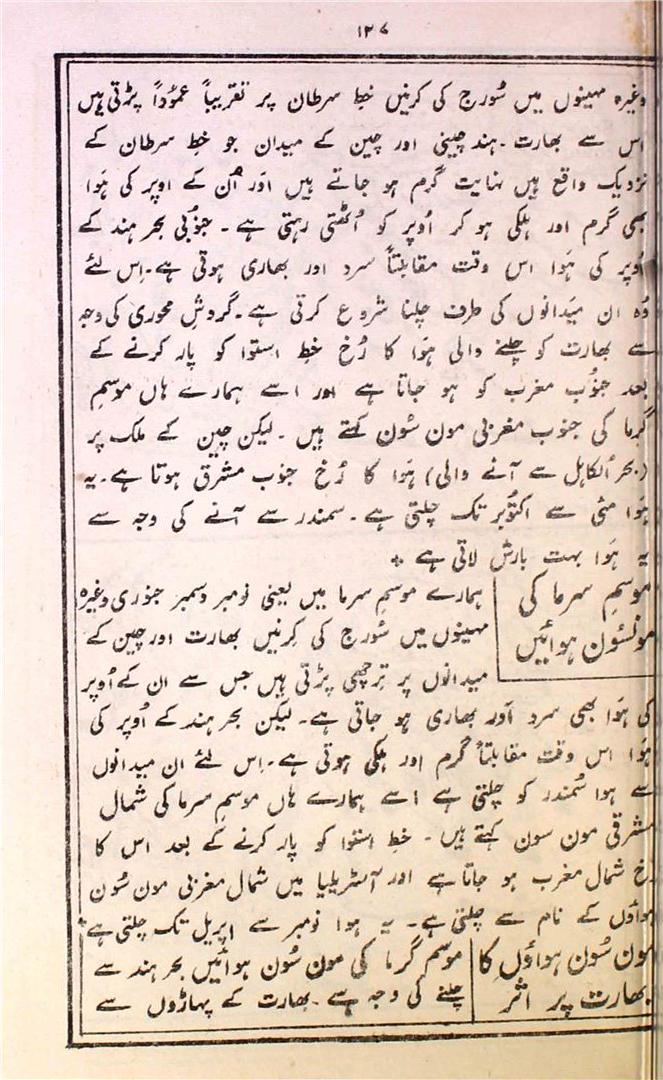 ۱۲۷
وغیرہ مہینوں میں سُورج کی کرنیں خطِ سرطان پر تقریباً عموُداً پڑتی ہیں
اس سے بھارت۔ ہند چینی اور چین کے میدان جو خطِ سرطان کے
نزدیک واقع ہیں نہایت گرم ہو جاتے ہیں اور اُن کے اوپر کی ہَوا
بھی گرم اور ہلکی ہو کر اُوپر کو اُٹھتی رہتی ہے۔ جنوُبی بحر ہند کے
اُوپر کی ہَوا اس وقت مقابلتاً سرد اور بھاری ہوتی ہے۔ اِس لئے
وُہ ان میَدانوں کی طرف چلنا شروع کرتی ہے۔ گردشِ محوری کی وجہ
سے بھارت کو چلنے والی ہَوا کا رُخ خطِ استوا کو پار کرنے کے
بعد جنوُب مغرب کو ہو جاتا ہے اور اسے ہمارے ہاں موسمِ
گرما کی جنوب مغربی مون سُون کہتے ہیں۔ لیکن چین کے ملک پر
(بحر اُلکاہل سے آنے والی) ہَوا کا رُخ جنوب مشرق ہوتا ہے۔ یہ
ہَوا مئی سے اکتوُبر تک چلتی ہے۔ سمندر سے آنے کی وجہ سے
یہ ہَوا بہت بارش لاتی ہے +
موسمِ سرما کی مونسُون ہوائیں
ہمارے موسمِ سرما میں یعنی نومبر دسمبر جنوری وغیرہ
مہینوں میں سُورج کی کِرنیں بھارت اور چین کے
میدانوں پر تِرچھی پڑتی ہیں جس سے ان کے اُوپر
کی ہَوا بھی سرد اَور بھاری ہو جاتی ہے۔ لیکن بحر ہند کے اُوپر کی
ہَوا اس وقت مقابلتاً گرم اور ہلکی ہوتی ہے۔ اِس لئے ان میدانوں
سے ہوا سُمندر کو چلتی ہے اسے ہمارے ہاں موسمِ سرما کی شمال
مشرقی مون سون کہتے ہیں۔ خطِ استوا کو پار کرنے کے بعد اس کا
رخ شمال مغرب ہو جاتا ہے اور آسٹریلیا میں شمال مغربی مون سُون
ہواؤں کے نام سے چلتی ہے۔ یہ ہوا نومبر سے اپریل تک چلتی ہے +
مون سُون ہواؤں کا بھارت پر اثر
موسم گرما کی مون سُون ہوائیں بحر ہند سے
چلنے کی وجہ سے۔ بھارت کے پہاڑوں سے